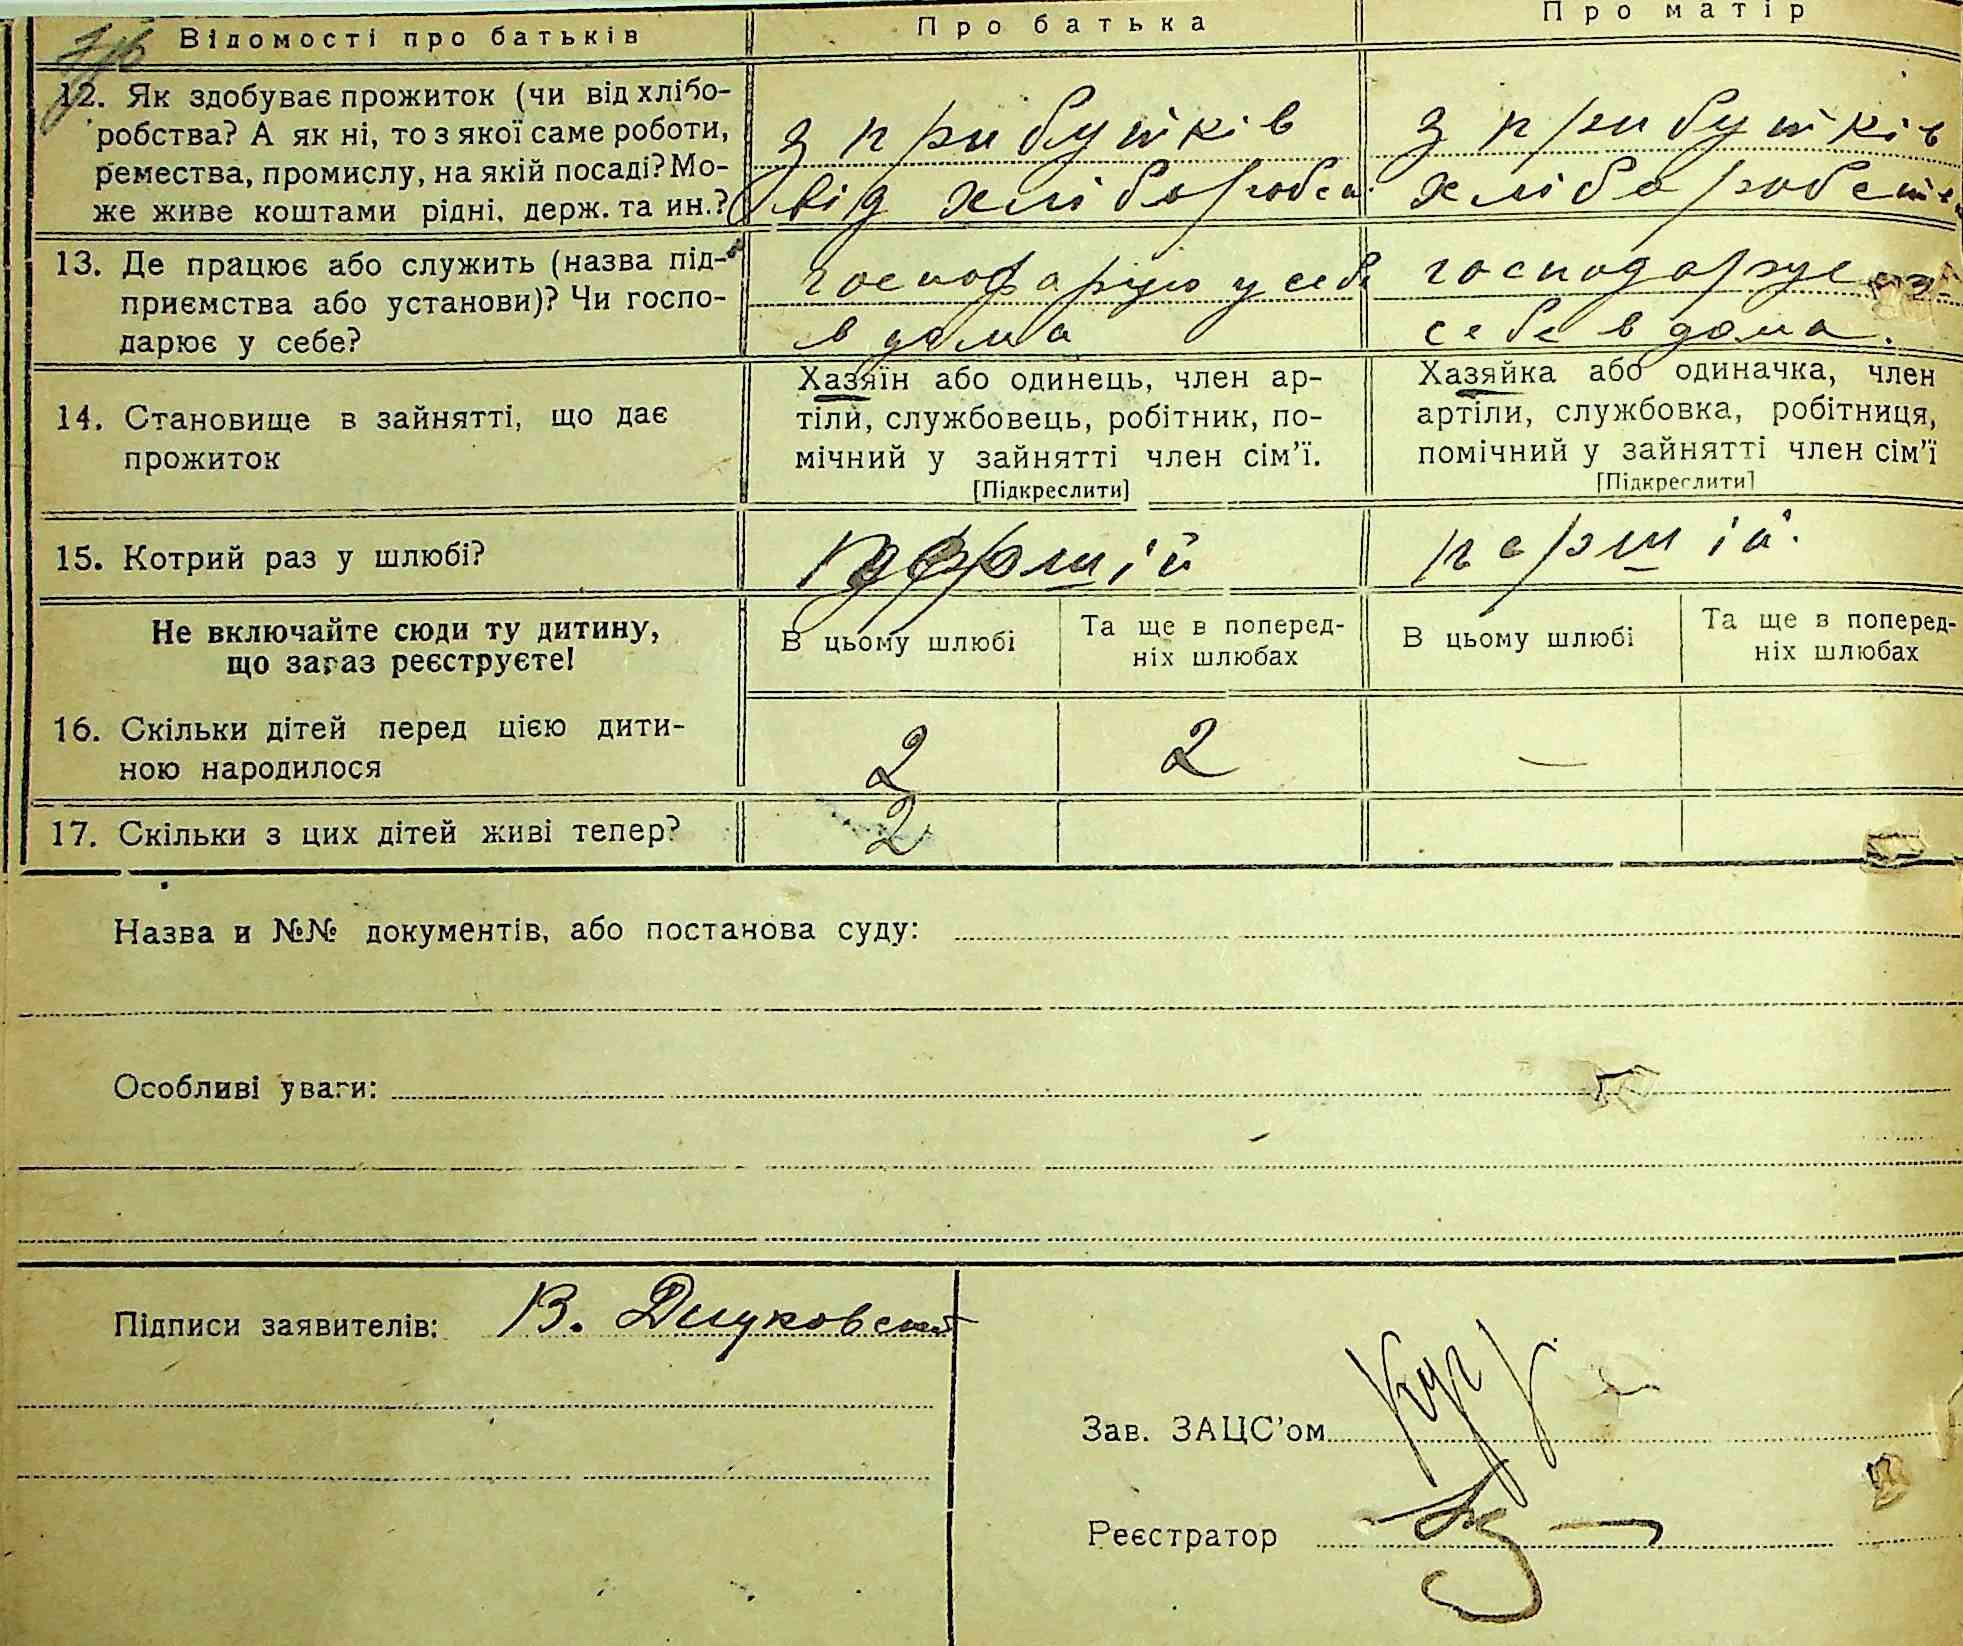 Відомості про батьків
Про батька
Про матір
12. Як здобуває прожиток (чи від хлібо-
робства? А як ні, то з якої саме роботи,
ремества, промислу, на якій посаді? Мо-
же живе коштами рідні, держ. та ин.?
з прибутків
від хлібороб
з прибутків
хліборобств
13. Де працює або служить (назва під-
приємства або установи)? Чи госпо-
дарює у себе?
господарую у себе
в дома
господарує
себе в дома.
14. Становище в зайнятті, що дає
прожиток
Хазяїн або одинець, член ар-
тіли, службовець, робітник, по-
мічний у зайнятті член сім'ї.
[Підкреслити]
Хазяйка або одиначка, член
артіли, службовка, робітниця,
помічний у зайнятті член сім'ї
[Підкреслити]
15. Котрий раз у шлюбі?
першій.
Не включайте сюди ту дитину,
що зараз реєструєте!
В цьому шлюбі
Та ще в поперед-
ніх шлюбах
В цьому шлюбі
Та ще в поперед-
ніх шлюбах
16. Скільки дітей перед цією дити-
ною народилося
2
2
—
17. Скільки з цих дітей живі тепер?
2
Назва и №№ документів, або постанова суду:
Особливі уваги:
Підписи заявителів: В.
Зав. ЗАЦС'ом
Реєстратор